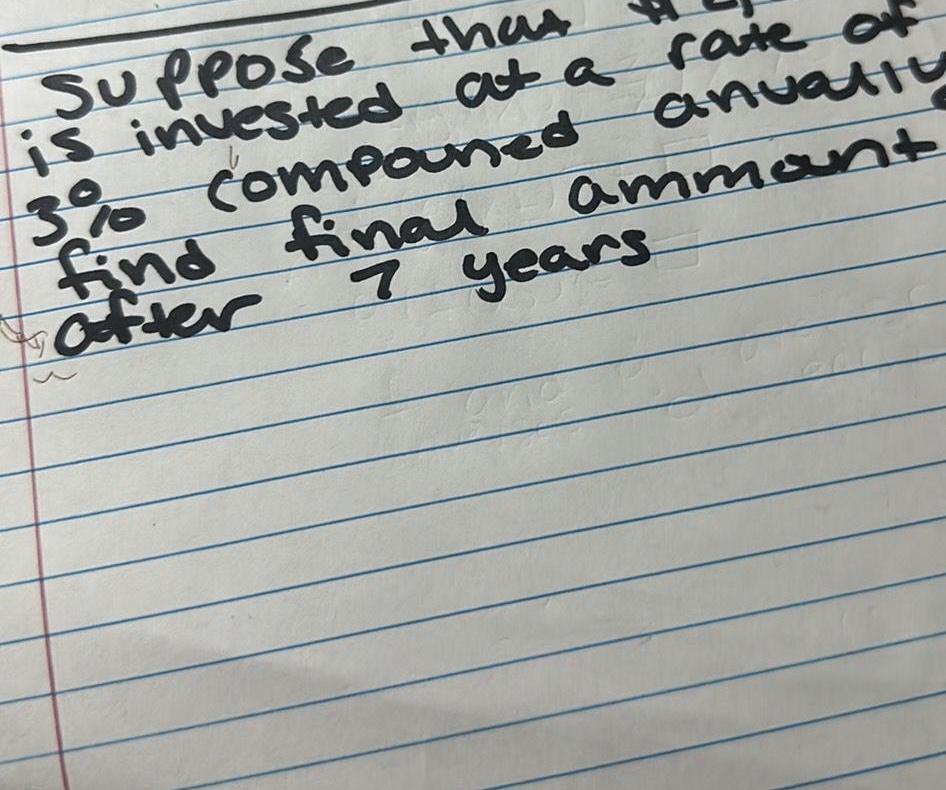 Suppose that
is invested at a rate of
3% compouned anually
find final ammount
after 7 years